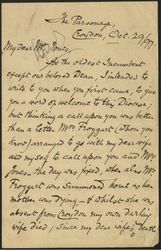 The Parsonage,
Croydon, Oct. 29/97
My dear Mr. Jones,
As the oldest Incumbent
except our beloved Dean, I intended to
write to you when you first came, to give
you a word of welcome to this Diocese,
but thinking a call upon you was better
than a letter Mr. Froggart (whom you
know) arranged to go with my dear wife
and myself to call upon you and Mrs.
Jones. The day was fixed, when alas Mr.
Froggart was summoned home as his
mother was dying — & whilst she was
absent from Croydon my own darling
wife died; since my dear wife's death